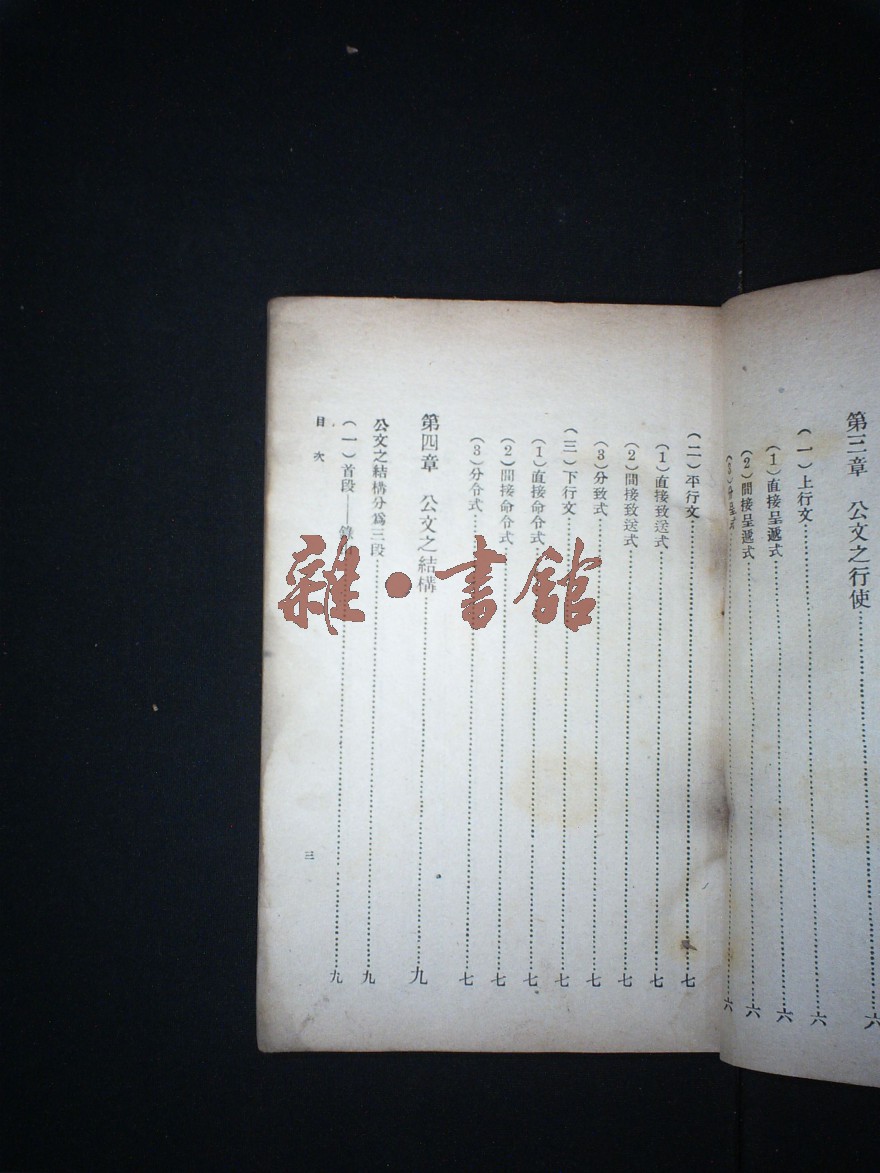 第三章　公文之行使……六
（一）上行文……六
（1）直接呈遞式……六
（2）間接呈遞式……六
（3）分呈式……六
（二）平行文……七
（1）直接致送式……七
（2）間接致送式……七
（3）分致式……七
（三）下行文……七
（1）直接命令式……七
（2）間接命令式……七
（3）分令式……七
第四章　公文之結構……九
公文之結構分爲三段……九
（一）首段——錄……九
目次
三
雜·書館